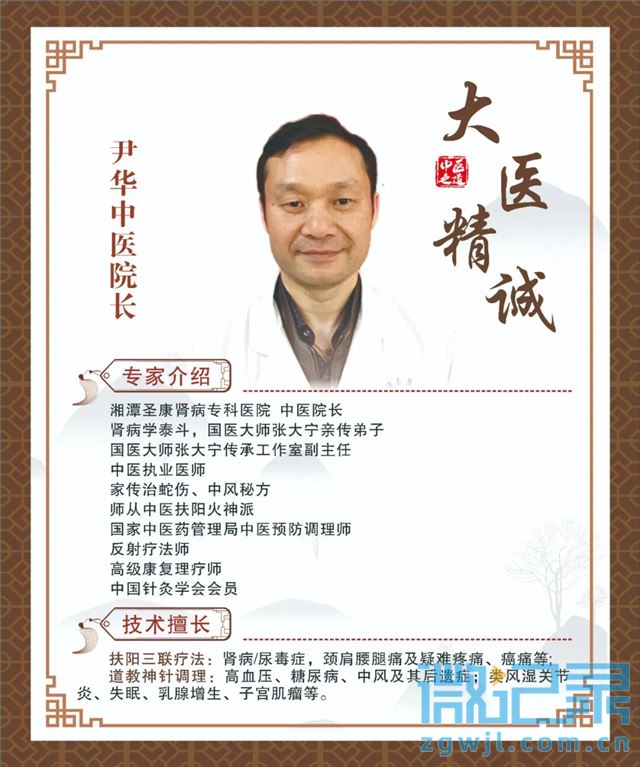 大医精诚
中医之道
尹华中医院长
专家介绍
湘潭圣康肾病专科医院 中医院长
肾病学泰斗，国医大师张大宁亲传弟子
国医大师张大宁传承工作室副主任
中医执业医师
家传治蛇伤、中风秘方
师从中医扶阳火神派
国家中医药管理局中医预防调理师
反射疗法师
高级康复理疗师
中国针灸学会会员
技术擅长
扶阳三联疗法：肾病/尿毒症，颈肩腰腿痛及疑难疼痛、癌痛等；
道教神针调理：高血压、糖尿病、中风及其后遗症；类风湿关节
炎、失眠、乳腺增生、子宫肌瘤等。
微记录
zgwjl.com.cn